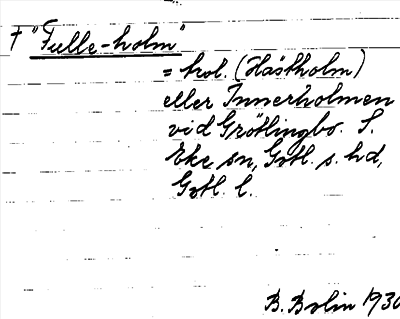 † "Fulle-holm"
= trol. (Hästholm)
eller Innerholmen
vid Grötlingbo. S.
Eke sn, Gotl. s. hd,
Gotl. l.
B. Bolin 1930